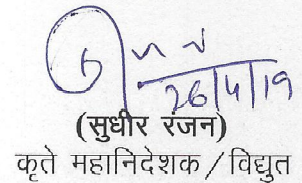 26/4/19
(सुधीर रंजन)
कृते महानिदेशक / विद्युत